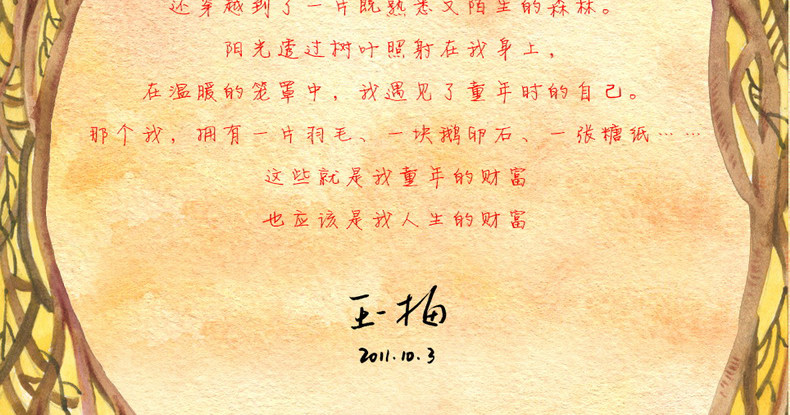 还穿越到了一片既熟悉又陌生的森林。
阳光透过树叶照射在我身上，
在温暖的笼罩中，我遇见了童年时的自己。
那个我，拥有一片羽毛、一块鹅卵石、一张糖纸……
这些就是我童年的财富
也应该是我人生的财富
王一梅
2011.10.3